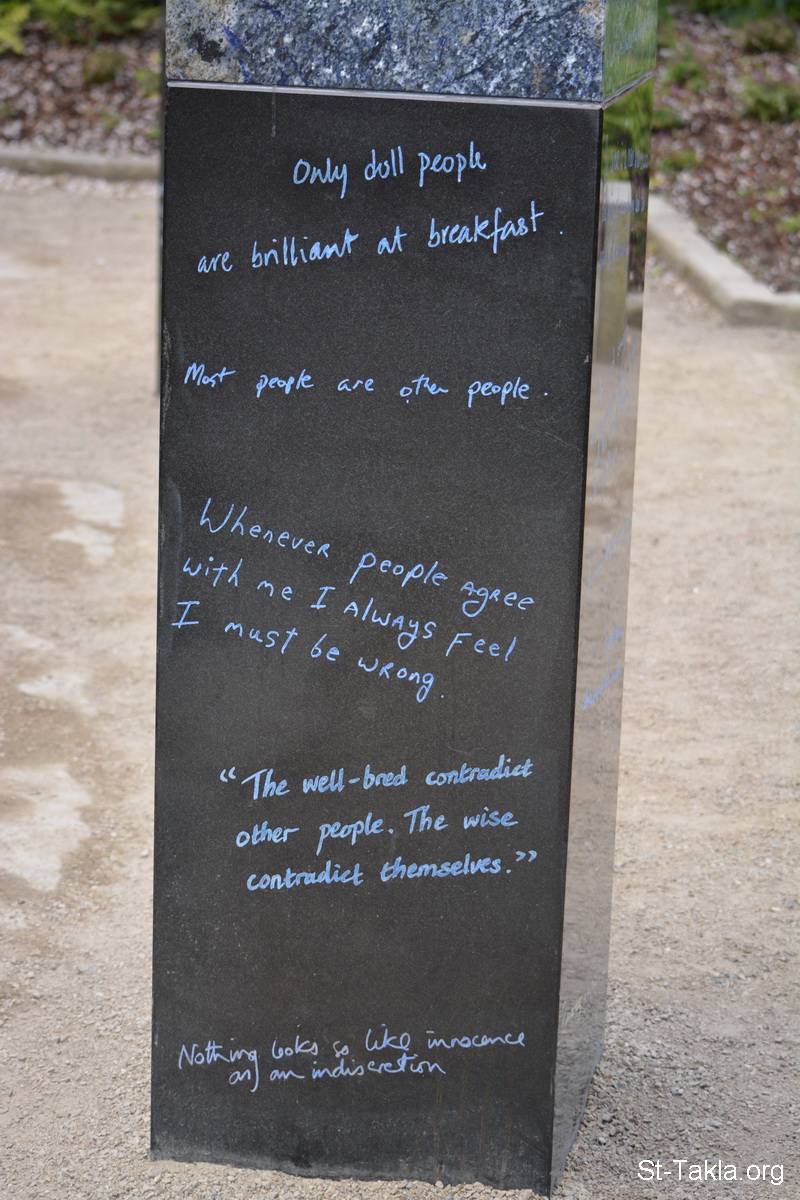 Only dull people
are brilliant at breakfast.
Most people are other people.
Whenever people agree
with me I Always Feel
I must be wrong.
“The well-bred contradict
other people. The wise
contradict themselves.”
Nothing looks so like innocence
as an indiscretion
St-Takla.org